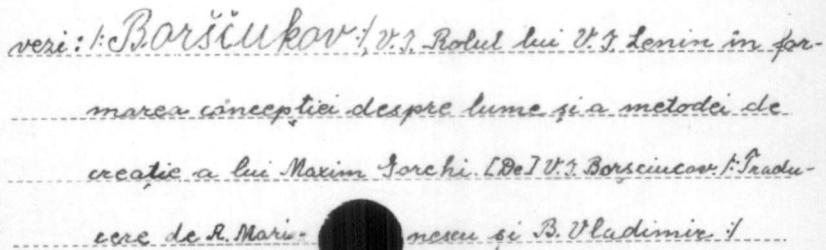 vezi: /: Borščukov :/, V. I. Rolul lui V. I. Lenin în for-
marea concepției despre lume și a metodei de
creație a lui Maxim Gorchi. [De] V. I. Borșciucov. /: Tradu-
cere de A. Mari- nescu și B. Vladimir :/